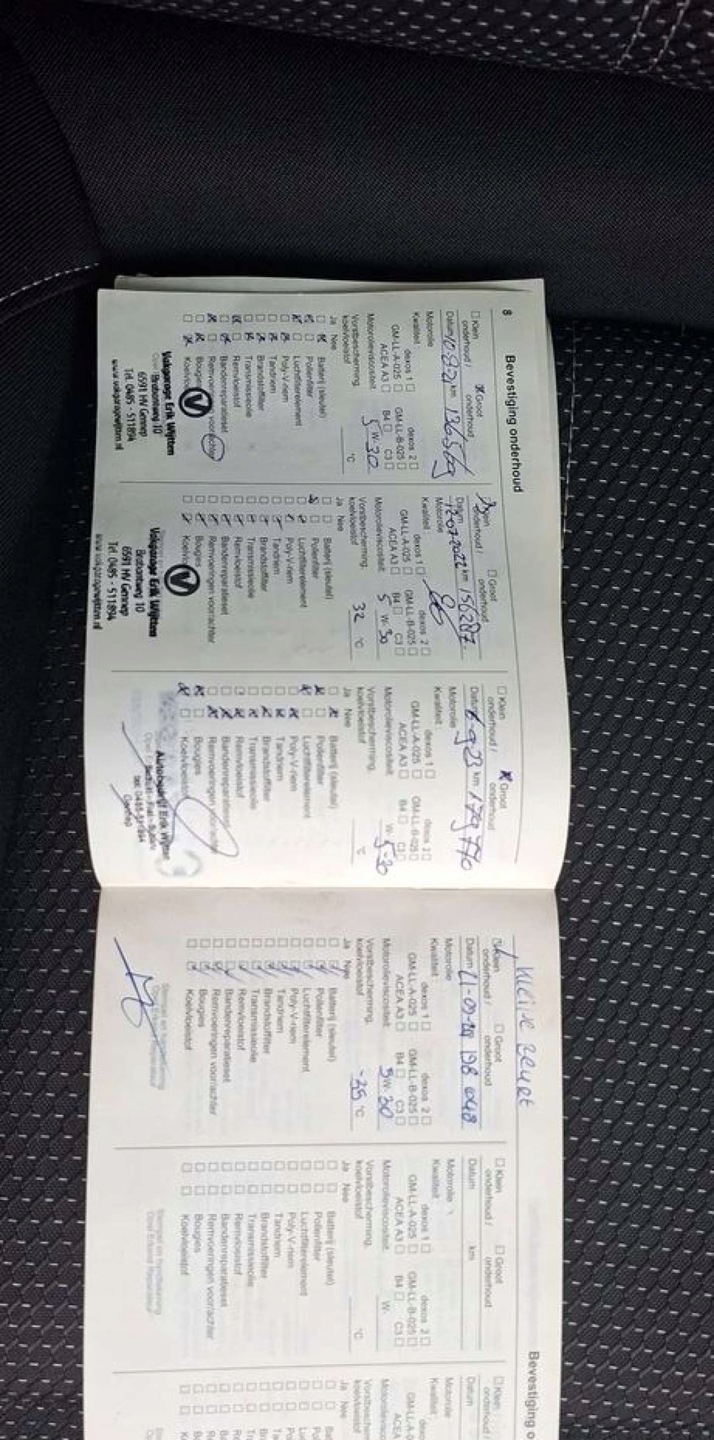 8 Bevestiging onderhoud
Klein onderhoud / Groot onderhoud
Datum km 136569
Motorolie
Kwaliteit: dexos 1 dexos 2
GM-LL-A-025 GM-LL-B-025
ACEA A3 B4 C3
Motorolieviscositeit: 5 W- 30
Vorstbescherming
koelvloeistof °C
Ja Nee
Batterij (sleutel)
Pollenfilter
Luchtfilterelement
Poly-V-riem
Tandriem
Brandstoffilter
Transmissieolie
Remvloeistof
Bandenreparatieset
Remvoeringen voor/achter
Bougies
Vakgarage Erik Wijtten
Brabantweg 10
6591 HV Gennep
Tel. 0485 - 511894
www.vakgaragewijtten.nl
Klein onderhoud / Groot onderhoud
Datum 12-07-2022 km 156287
Motorolie
Kwaliteit: dexos 1 dexos 2
GM-LL-A-025 GM-LL-B-025
ACEA A3 B4 C3
Motorolieviscositeit: 5 W- 30
Vorstbescherming
koelvloeistof 32 °C
Ja Nee
Batterij (sleutel)
Pollenfilter
Luchtfilterelement
Poly-V-riem
Tandriem
Brandstoffilter
Transmissieolie
Remvloeistof
Bandenreparatieset
Remvoeringen voor/achter
Bougies
Vakgarage Erik Wijtten
Brabantweg 10
6591 HV Gennep
Tel. 0485 - 511894
www.vakgaragewijtten.nl
Klein onderhoud / Groot onderhoud
Datum 6-9-23 km 179770
Motorolie
Kwaliteit: dexos 1 dexos 2
GM-LL-A-025 GM-LL-B-025
ACEA A3 B4 C3
Motorolieviscositeit: W- 5-30
Vorstbescherming
koelvloeistof °C
Ja Nee
Batterij (sleutel)
Pollenfilter
Luchtfilterelement
Poly-V-riem
Tandriem
Brandstoffilter
Transmissieolie
Remvloeistof
Bandenreparatieset
Remvoeringen voor/achter
Bougies
Koelvloeistof
Autobedrijf Erik Wijtten
Gennep
Bevestiging o
Kleine beurt
Klein onderhoud / Groot onderhoud
Datum 198 048
Motorolie
Kwaliteit: dexos 1 dexos 2
GM-LL-A-025 GM-LL-B-025
ACEA A3 B4 C3
Motorolieviscositeit: 5 W- 30
Vorstbescherming
koelvloeistof -35 °C
Ja Nee
Batterij (sleutel)
Pollenfilter
Luchtfilterelement
Poly-V-riem
Tandriem
Brandstoffilter
Transmissieolie
Remvloeistof
Bandenreparatieset
Remvoeringen voor/achter
Bougies
Koelvloeistof
Stempel en handtekening
Opel Erkend Reparateur
Klein onderhoud / Groot onderhoud
Datum km
Motorolie
Kwaliteit: dexos 1 dexos 2
GM-LL-A-025 GM-LL-B-025
ACEA A3 B4 C3
Motorolieviscositeit: W-
Vorstbescherming
koelvloeistof °C
Ja Nee
Batterij (sleutel)
Pollenfilter
Luchtfilterelement
Poly-V-riem
Tandriem
Brandstoffilter
Transmissieolie
Remvloeistof
Bandenreparatieset
Remvoeringen voor/achter
Bougies
Koelvloeistof
Stempel en handtekening
Opel Erkend Reparateur
Klein onderhoud /
Datum
Motorolie
Kwaliteit:
GM-LL-A-
ACEA
Motorolieviscositeit
Vorstbescherm
koelvloeistof
Ja Nee
Batt
Poll
Luch
Poly
Ta
Bra
Tra
Re
Ba
Re
Bo